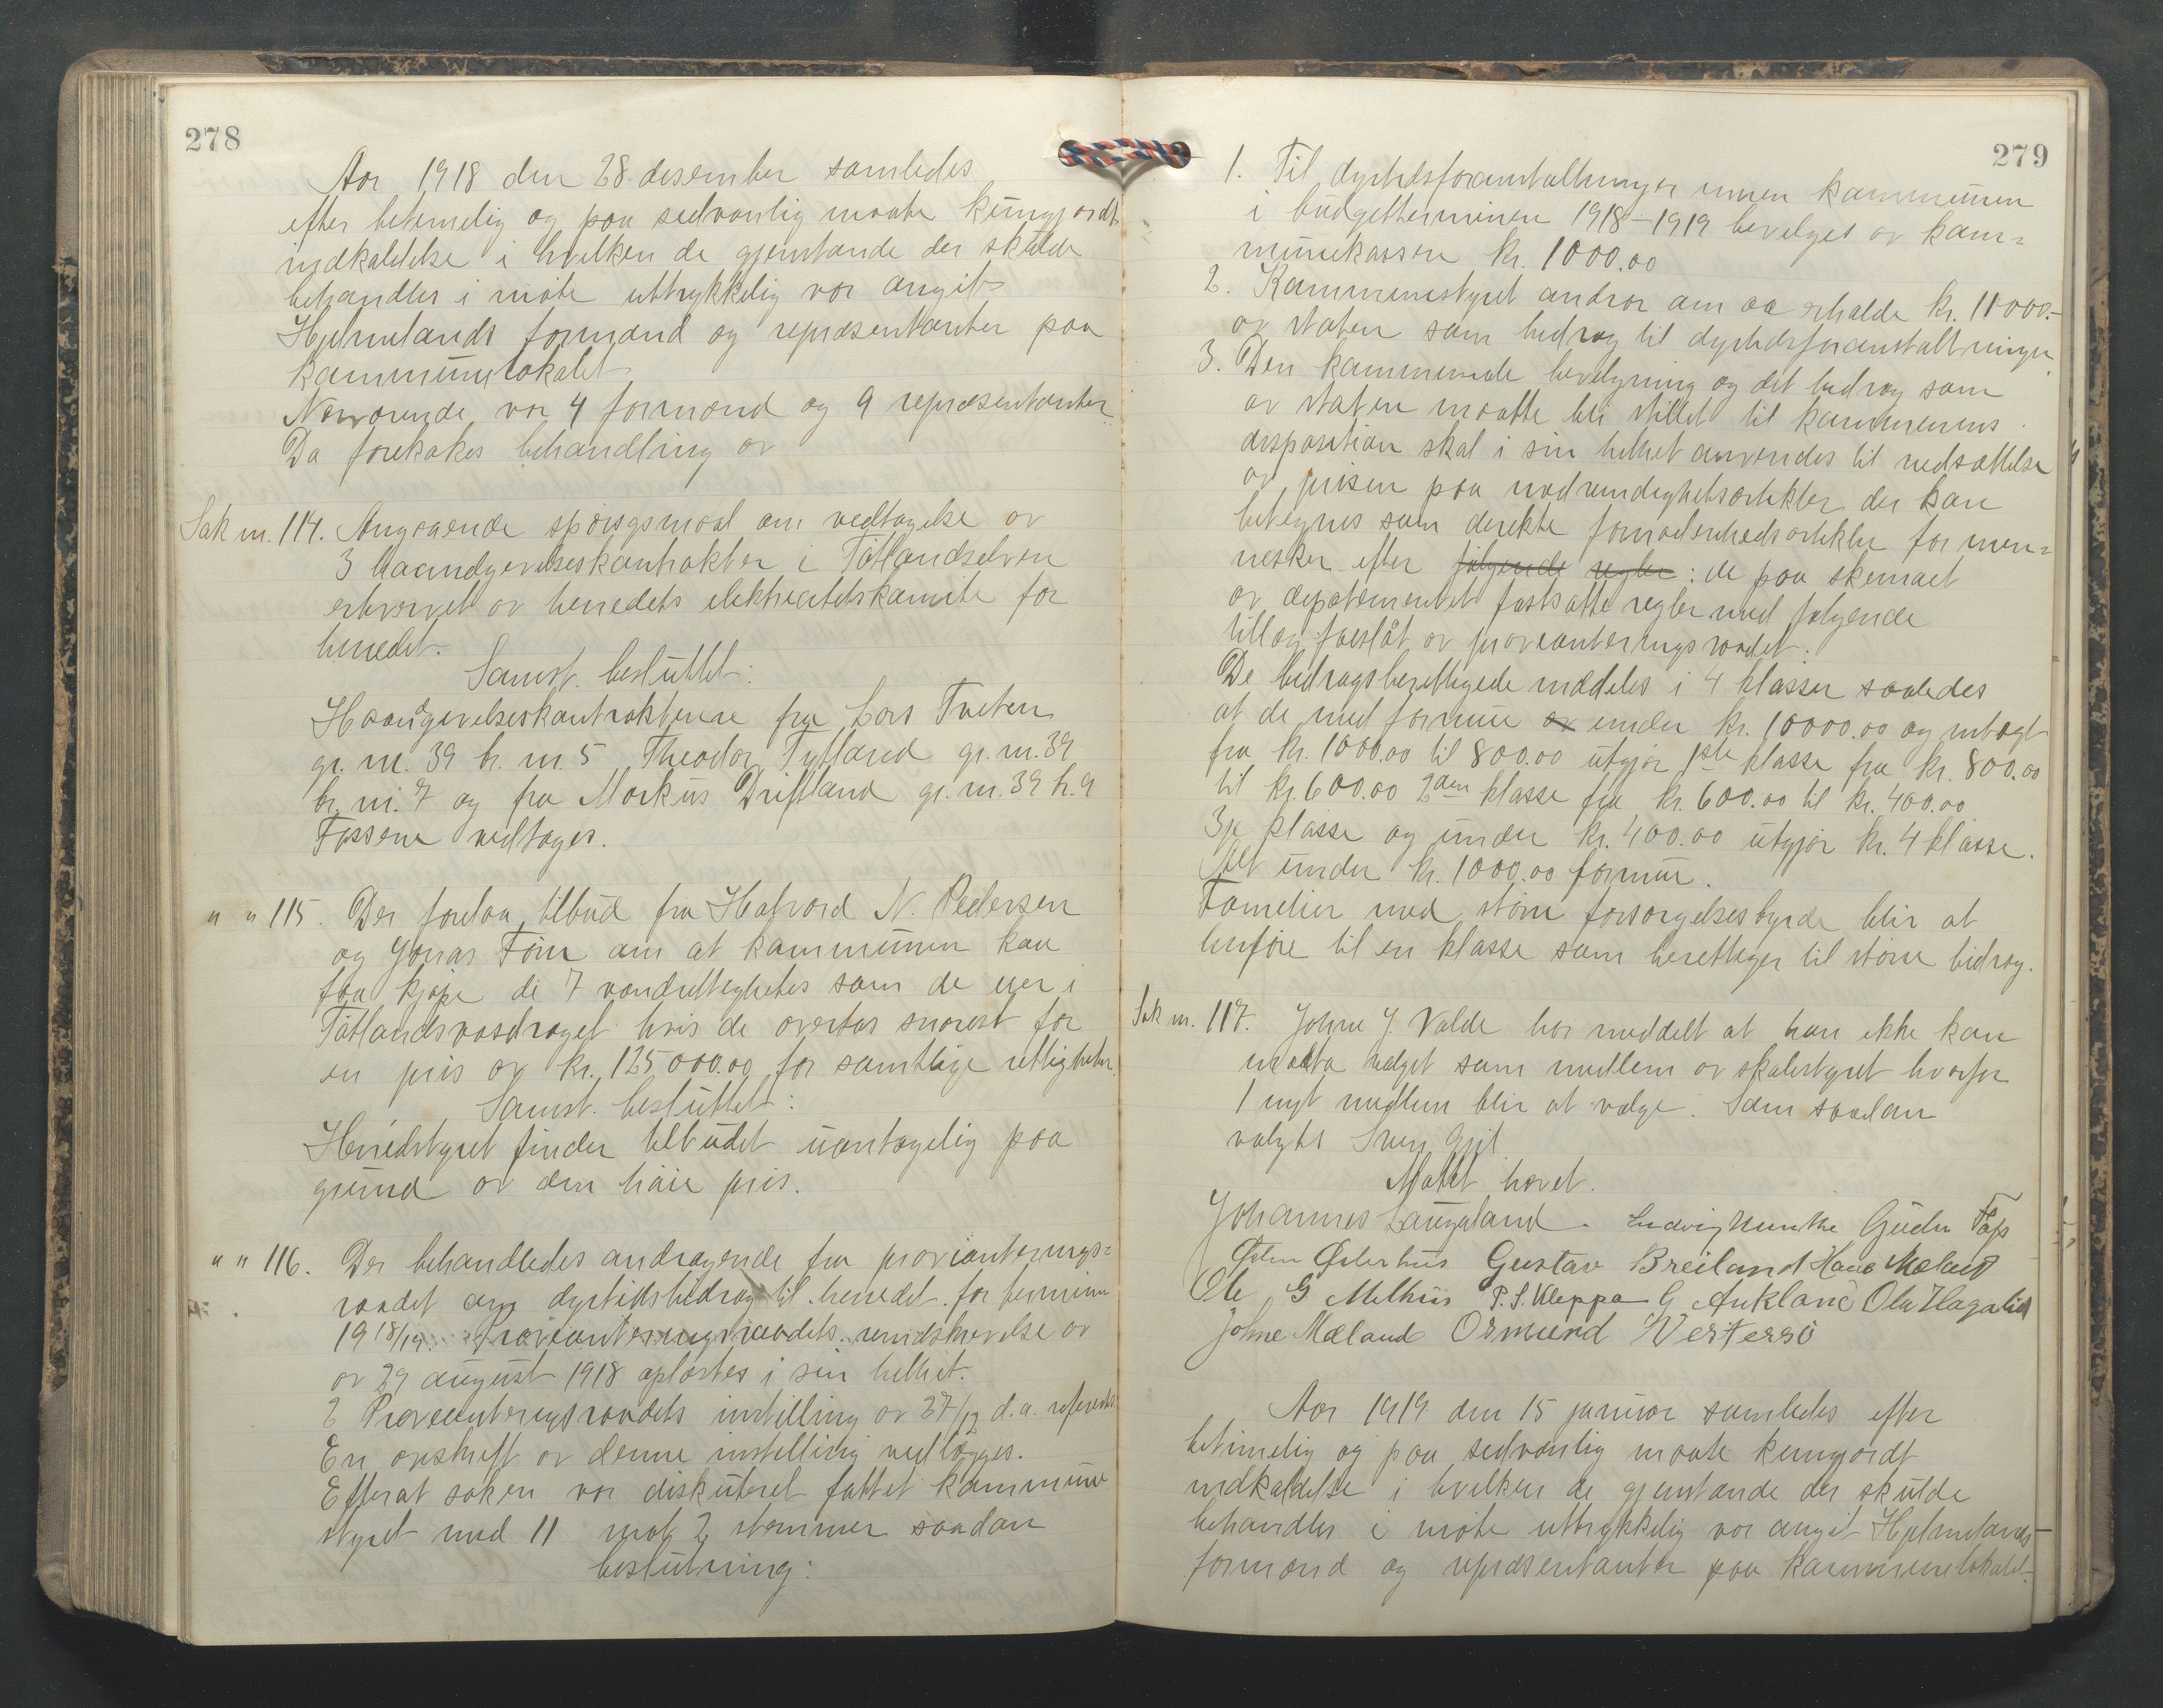 278
Aar 1918 den 28 desember samledes
efter betimelig og paa sedvanlig maate kungjordt
indkaldelse i hvilken de gjenstande der skulde
behandles i møte uttrykkelig var angit
Hjelmelands formænd og repræsentanter paa
kammunelokalet
Nærværende var 4 formænd og 9 repræsentanter
Da foretokes behandling av
Sak nr. 114. Angaaende spørsgsmaal om vedtagelse av
3 haandgivelseskontrakter i Tøtlandselven
erhvervet av herredets elektrecitetskomite for
herredet.
Samst. besluttet:
Haandgivelseskontrakterne fra Lars Tveten
gr. nr. 39 br. nr. 5 Theodor Tytland gr. nr. 39
br. nr. 7 og fra Markus Driftland gr. nr. 39 b. 9
Fossene vedtages.
" " 115. Der forelaa tilbud fra Hafvard N. Pedersen
og Jonas Fønn om at kammunen kan
faa kjøpe de 7 vandrettigheter som de eier i
Tøtlandsvasdraget hvis de overtas snarest for
en pris av kr. 125000.00 for samtlige rettigheter.
Samst. besluttet:
Herredstyret finder tilbudet uantagelig paa
grund av den høie pris.
" " 116. Der behandledes andragende fra provianterings=
raadet om dyrtidsbidrag til herredet for terminen
1918/19. Provianteringsraadets rundskrivelse av
av 29 august 1918 oplæstes i sin helhet.
2 Provianteringsraadets instilling av 27/12 d.a. refererts.
En avskrift av denne instilling vedlægges.
Efterat saken var diskuteret fattet kammune
styret med 11 mot 2 stemmer saadan
beslutning:
279
1. Til dyrtidsforanstaltninger innen kammunen
i budgetterminen 1918–1919 bevilges av kam=
munekassen kr. 1000.00
2. Kammunestyret andrar om aa erholde kr. 11000.–
av staten som bidrag til dyrtidsforanstaltninger.
3. Den kammunale bevilgning og det bidrag som
av staten maatte bli stillet til kammunens
disposition skal i sin helhet anvendes til nedsættelse
av prisen paa nødvendighetsartikler der kan
betegnes som direkte fornødenhedsartikler for men=
nesker efter følgende regler: de paa skemaet
av depatementet fastsatte regler med følgende
tillæg foeslåt av provianteringsraadet:
De bidragsberettigede inddeles i 4 klasser saaledes
at de med formue av under kr. 10000.00 og intægt
fra kr. 1000.00 til 800.00 utgjør 1ste klasse fra kr. 800.00
til kr. 600.00 2den klasse fra kr. 600.00 til kr. 400.00
3je klasse og under kr. 400.00 utgjør kr. 4 klasse.
Alt under kr. 1000.00 formue.
Familier med støre forsørgelsesbyrde blir at
henføre til en klasse som berettiger til støre bidrag.
Sak nr. 117. Johne J. Valde har meddelt at han ikke kan
motta valget som medlem av skolestyret hvorfor
1 nyt medlem blir at vælge. Som saadan
valgtes Sven Gjil
Møtet hævet.
Johannes Laugaland. Ludvig Munthe Guder Fops
Østen Østerhus Gustav Breiland Hans Mæland
Ole G Melhus P. S. Kleppa G Aukland Ola Hagalid
Johne Mæland Osmund Vestersø
Aar 1919 den 15 januar samledes efter
betimelig og paa sedvanlig maate kungjordt
indkaldelse i hvilken de gjenstande der skulde
behandles i møte uttrykkelig var angit Hjelmelands-
formænd og repræsentanter paa kammunelokalet.